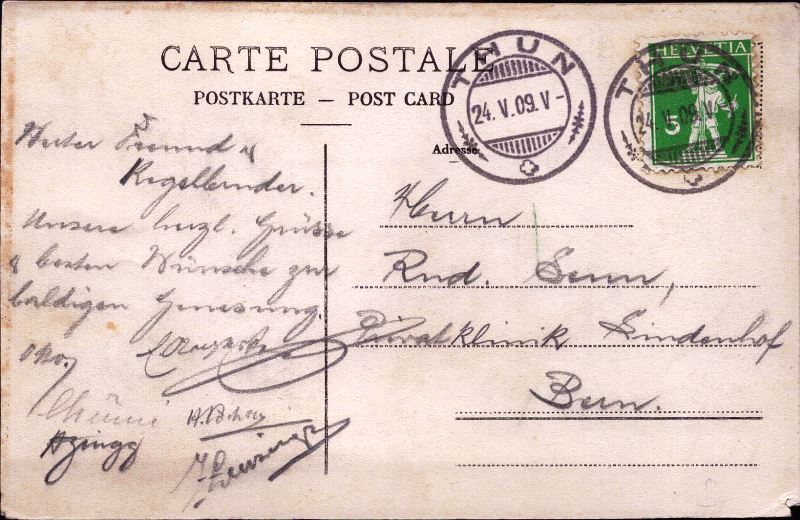 CARTE POSTALE
POSTKARTE — POST CARD
THUN
24. V. 09. V-
HELVETIA
5
THUN
24. V. 09. V-
Adresse
Werter Freund &
Kegelbruder.
Unsere herzl. Grüsse
& besten Wünsche zur
baldigen Genesung.
Herrn
Rud. Senn,
Privatklinik Lindenhof
Bern.
Azingg